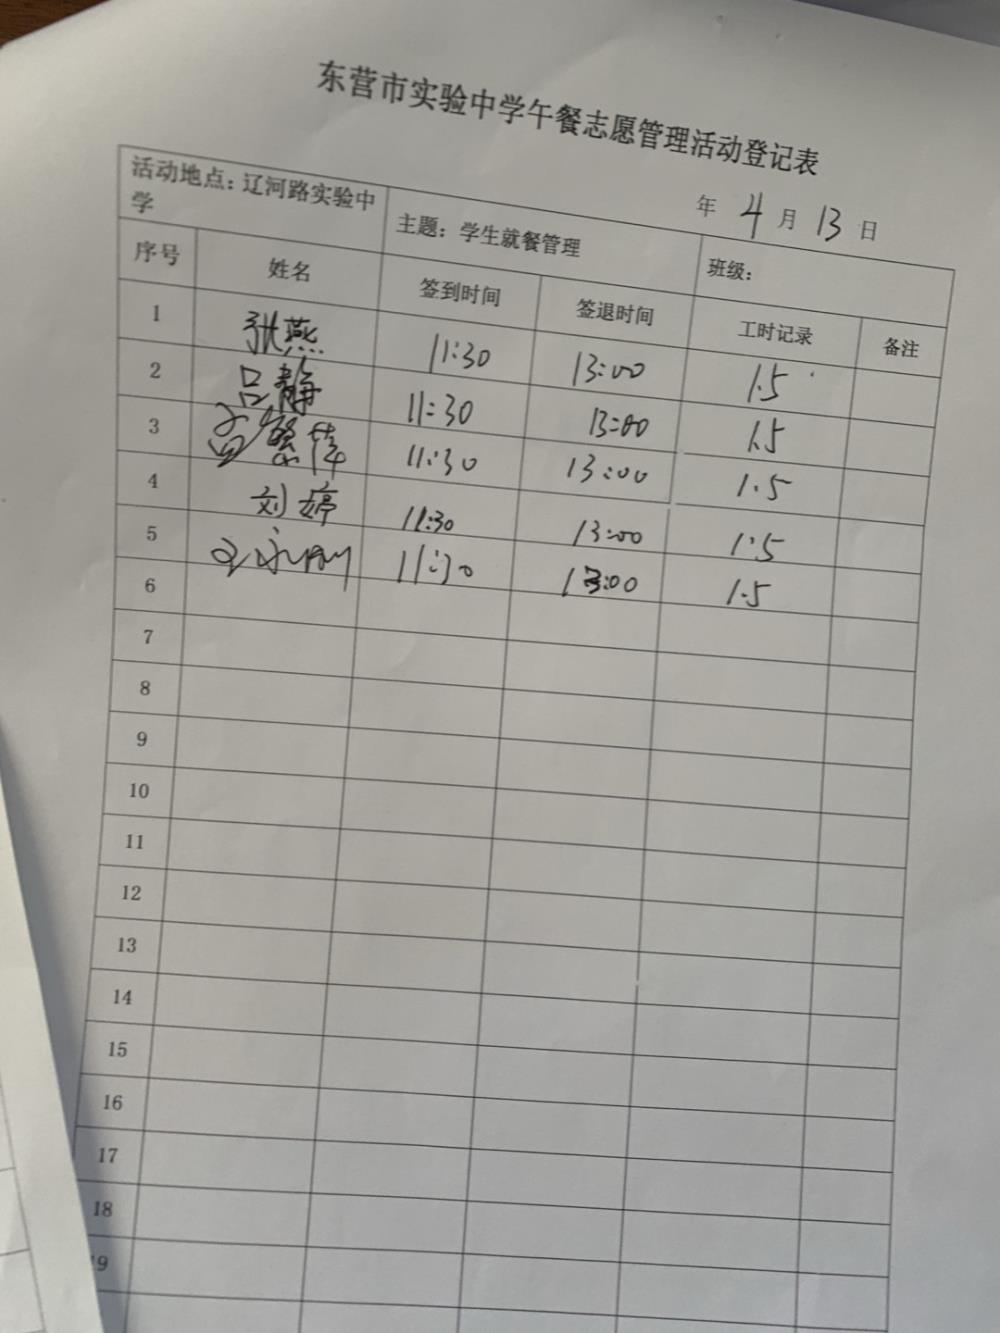 东营市实验中学午餐志愿管理活动登记表
年 4 月 13 日
活动地点：辽河路实验中学 主题：学生就餐管理 班级：
序号 姓名 签到时间 签退时间 工时记录 备注
1 张燕 11:30 13:00 1.5
2 吕静 11:30 13:00 1.5
3 11:30 13:00 1.5
4 刘婷 11:30 13:00 1.5
5 11:30 13:00 1.5
6
7
8
9
10
11
12
13
14
15
16
17
18
19